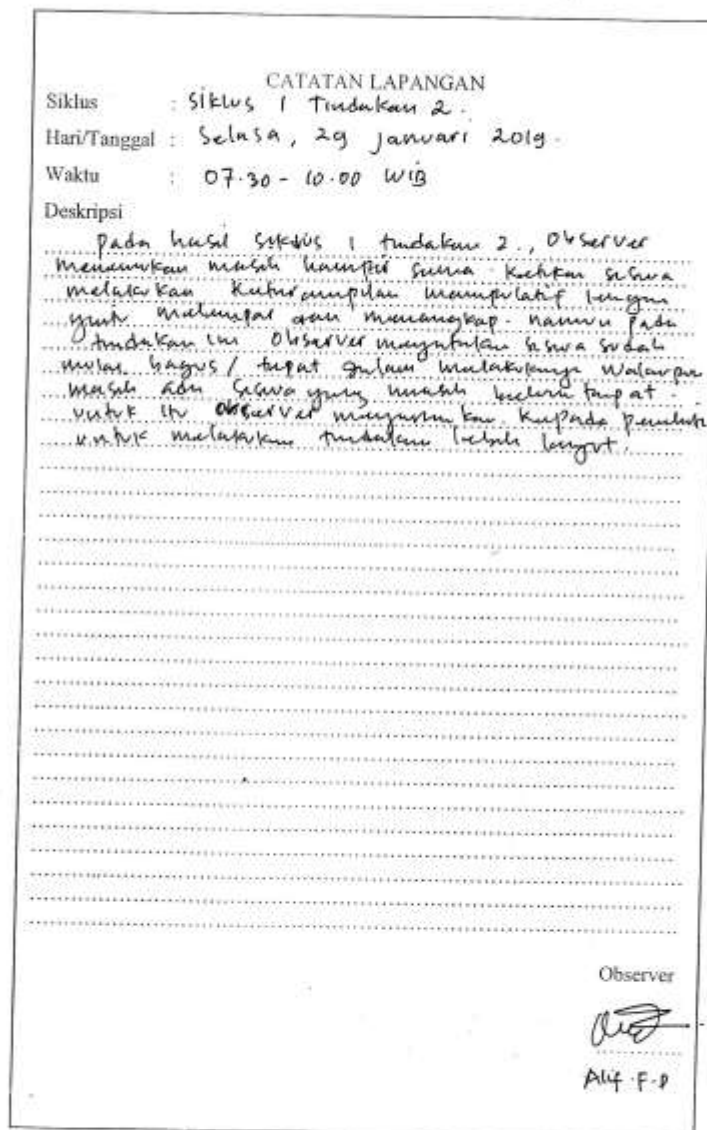 CATATAN LAPANGAN
Siklus : Siklus 1 Tindakan 2.
Hari/Tanggal : Selasa, 29 Januari 2019.
Waktu : 07.30 - 10.00 WIB
Deskripsi
Pada hasil siklus 1 tindakan 2., Observer
menemukan masih hampir sama ketika siswa
melakukan keterampilan manipulatif lengan
yaitu melempar dan menangkap. namun pada
tindakan ini Observer mengatakan siswa sudah
mulai bagus / tepat dalam melakukannya walaupun
masih ada siswa yang masih belum tepat.
untuk itu observer kepada peneliti
untuk melakukan tindakan lebih lanjut.
Observer
Alif . F . D